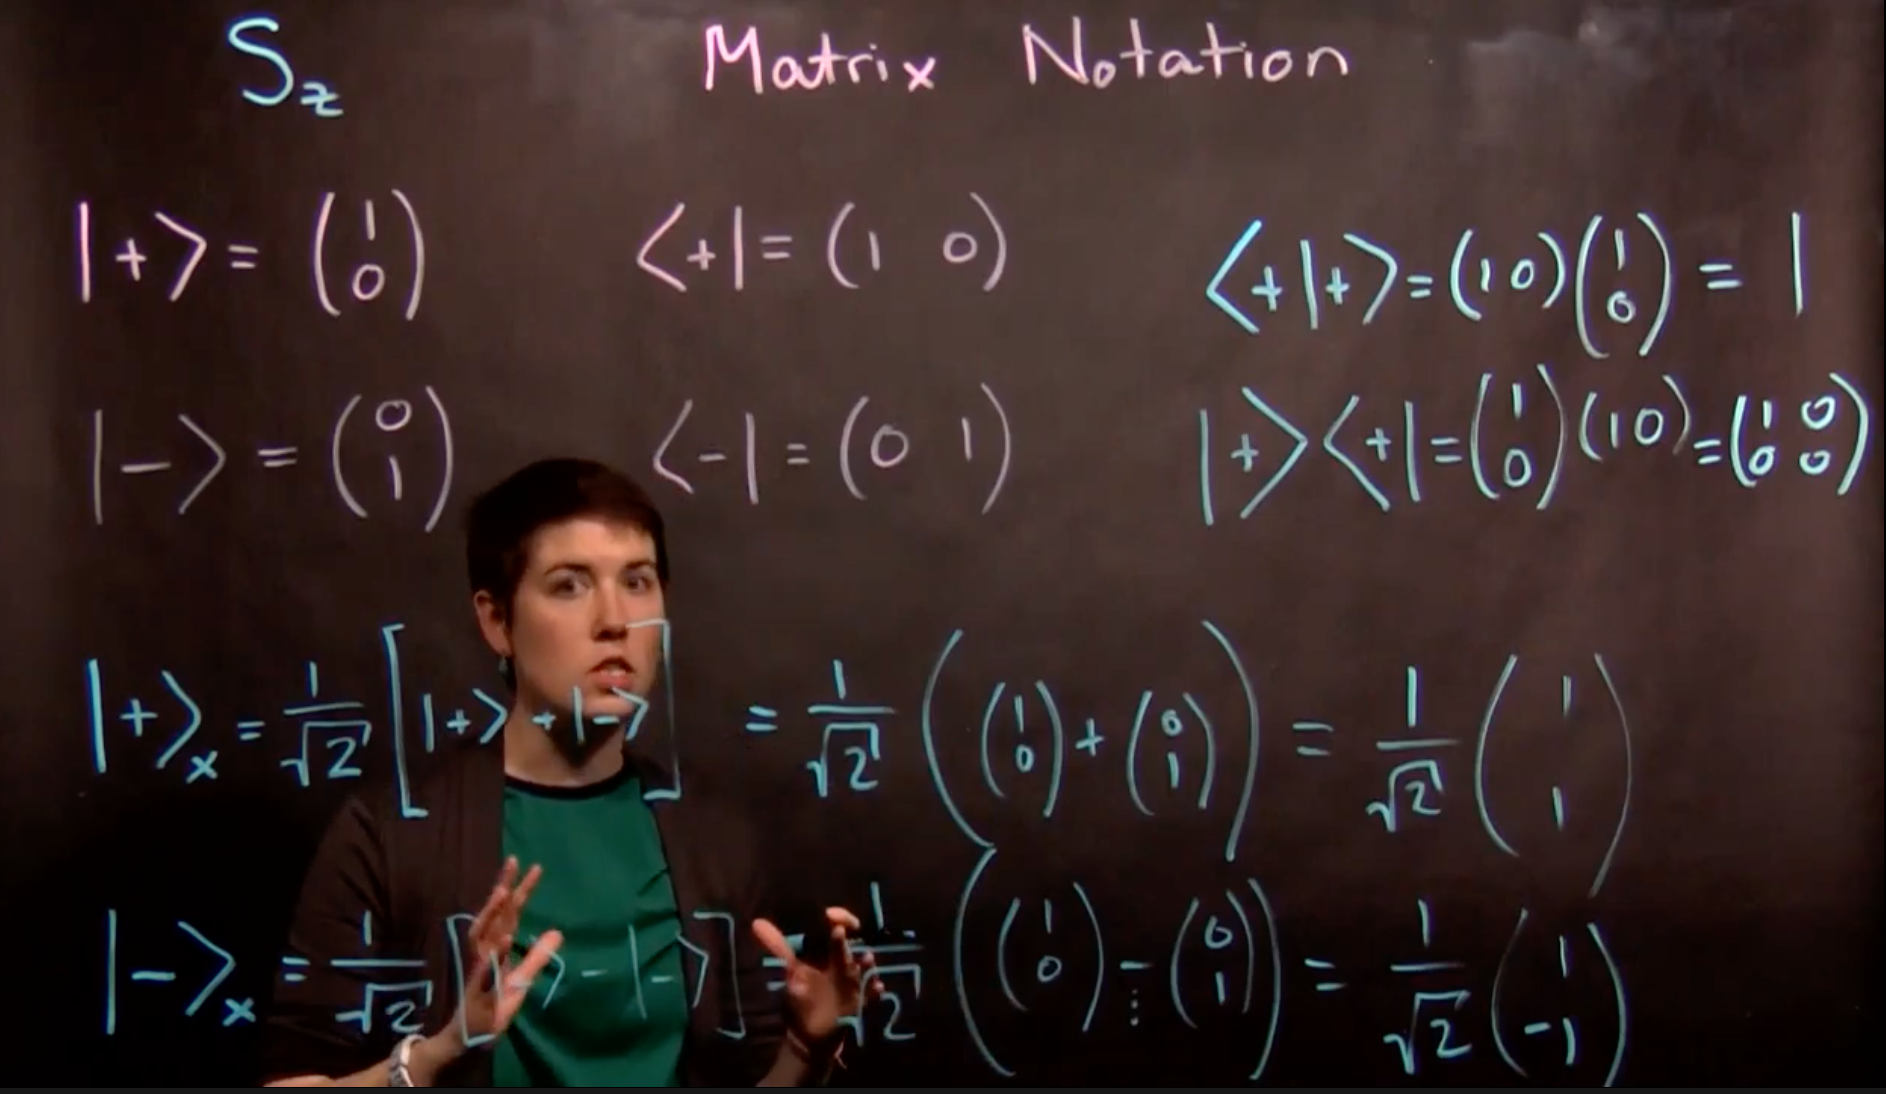 S_z Matrix Notation
|+> = (1 0) <+| = (1 0) <+|+> = (1 0)(1 0) = 1
|-> = (0 1) <-| = (0 1) |+><+| = (1 0)(1 0) = (1 0 0 0)
|+>_x = 1/√2 [|+> + |->] = 1/√2 ((1 0) + (0 1)) = 1/√2 (1 1)
|->_x = 1/√2 [| > - |->] = 1/√2 ((1 0) - (0 1)) = 1/√2 (1 -1)